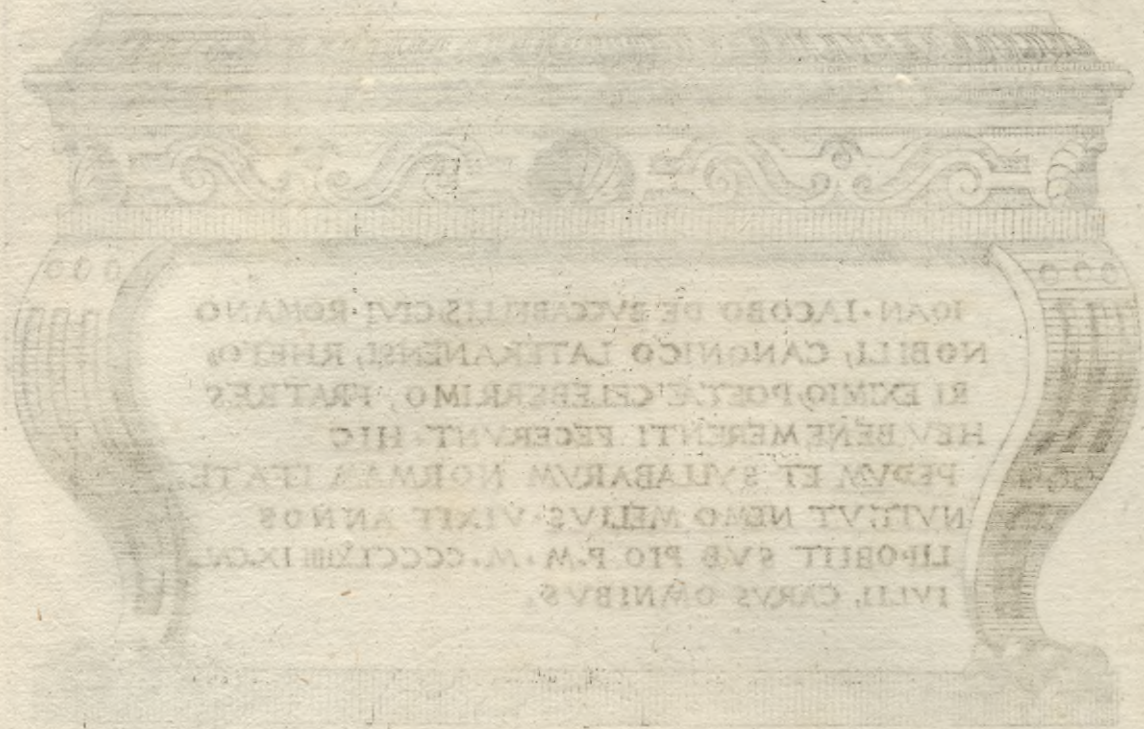 IOAN·IACOBO DE BVCCABELLIS CIVI·ROMANO
NOBILI, CANONICO LATERANENSI, RHETO,
RI EXIMIO, POETÆ CELEBERRIMO, FRATRES
HEV BENEMERENTI FECERVNT· HIC
PEDVM ET SYLLABARVM NORMAM ITA TE,
NVIT, VT NEMO MELIVS· VIXIT ANNOS
LI, OBIIT SVB PIO P.M· M·CCCCLXIIII
IVLII, CARVS OMNIBVS,